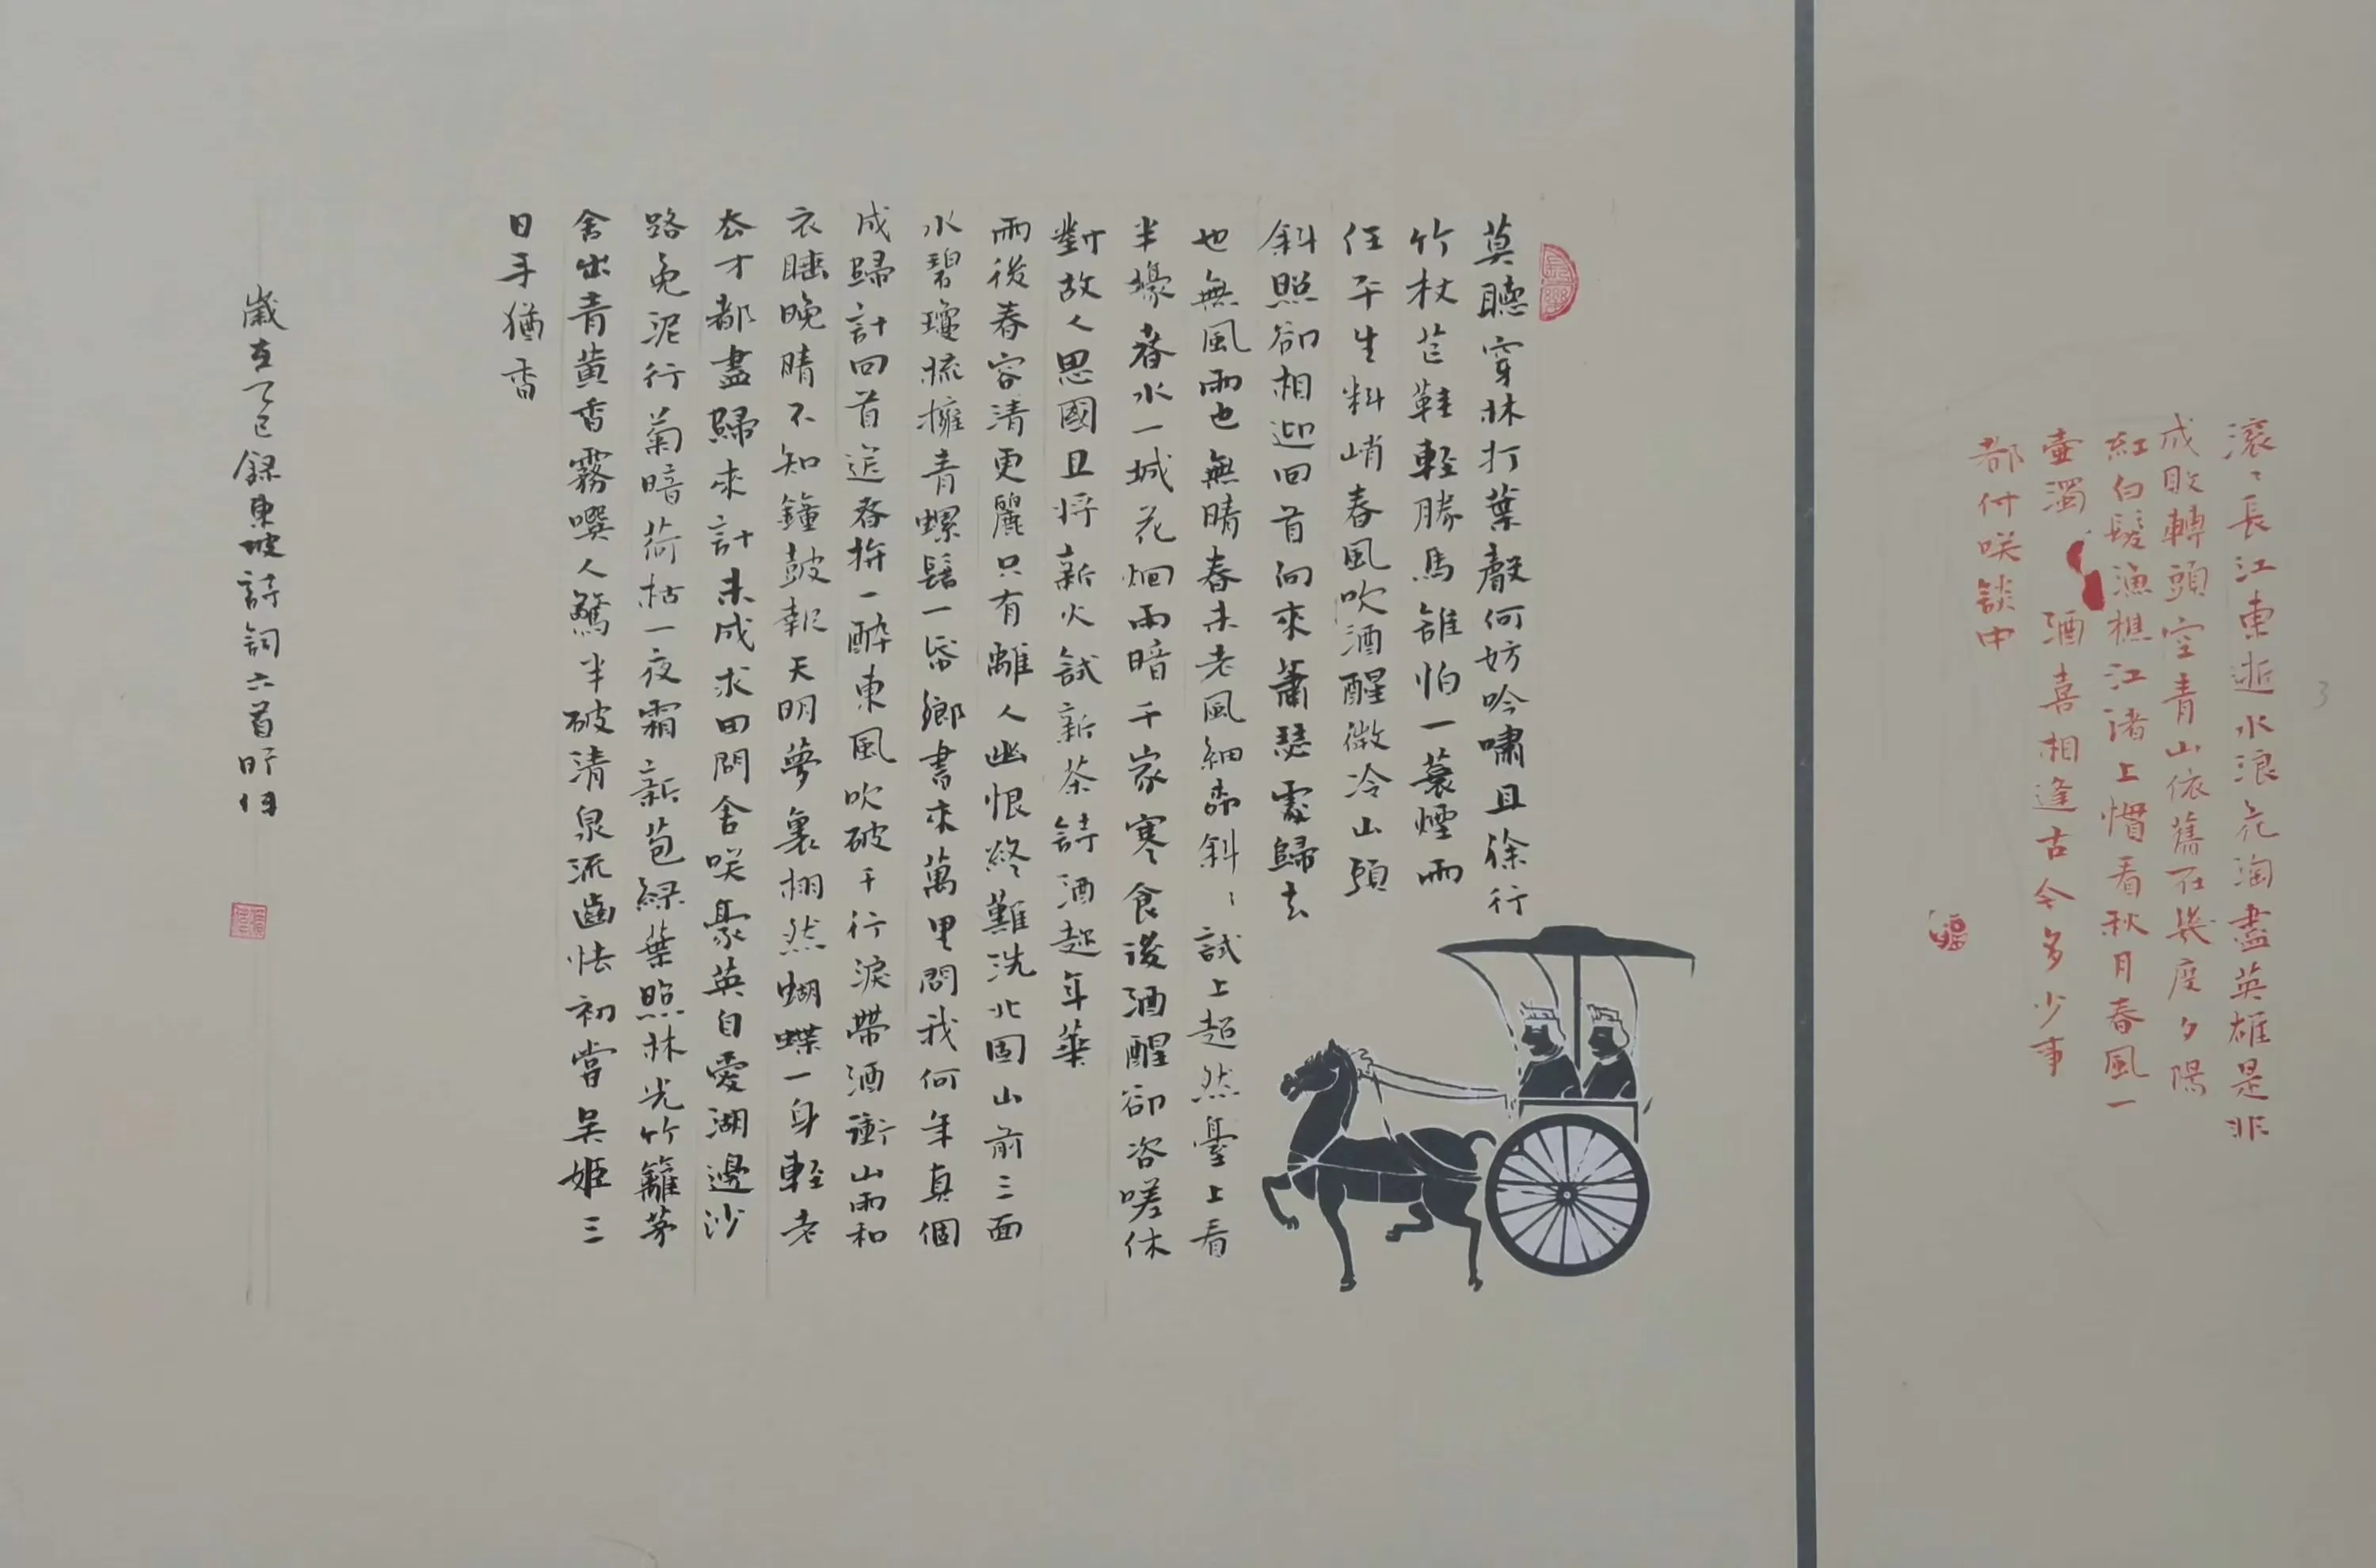 滾〻長江東逝水浪花淘盡英雄是非
成敗轉頭空青山依舊在幾度夕陽
紅白髮漁樵江渚上慣看秋月春風一
壺濁酒喜相逢古今多少事
都付咲談中
福
莫聽穿林打葉聲何妨吟嘯且徐行
竹杖芒鞋輕勝馬誰怕一蓑煙雨
任平生料峭春風吹酒醒微冷山頭
斜照卻相迎回首向來蕭瑟處歸去
也無風雨也無晴春未老風細柳斜〻試上超然臺上看
半壕春水一城花煙雨暗千家寒食後酒醒卻咨嗟休
對故人思國且將新火試新茶詩酒趁年華
雨後春容清更麗只有離人幽恨終難洗北固山前三面
水碧瓊梳擁青螺髻一帋鄉書來萬里問我何年真個
成歸計回首送春拚一醉東風吹破千行淚帶酒衝山雨和
衣睡晚晴不知鐘鼓報天明夢裏栩然蝴蝶一身輕老
去才都盡歸來計未成求田問舍咲豪英自愛湖邊沙
路免泥行菊暗荷枯一夜霜新苞綠葉照林光竹籬茅
舍出青黃香霧噀人驚半破清泉流齒怯初嘗吳姬三
日手猶香
歲在乙巳錄東坡詩詞六首